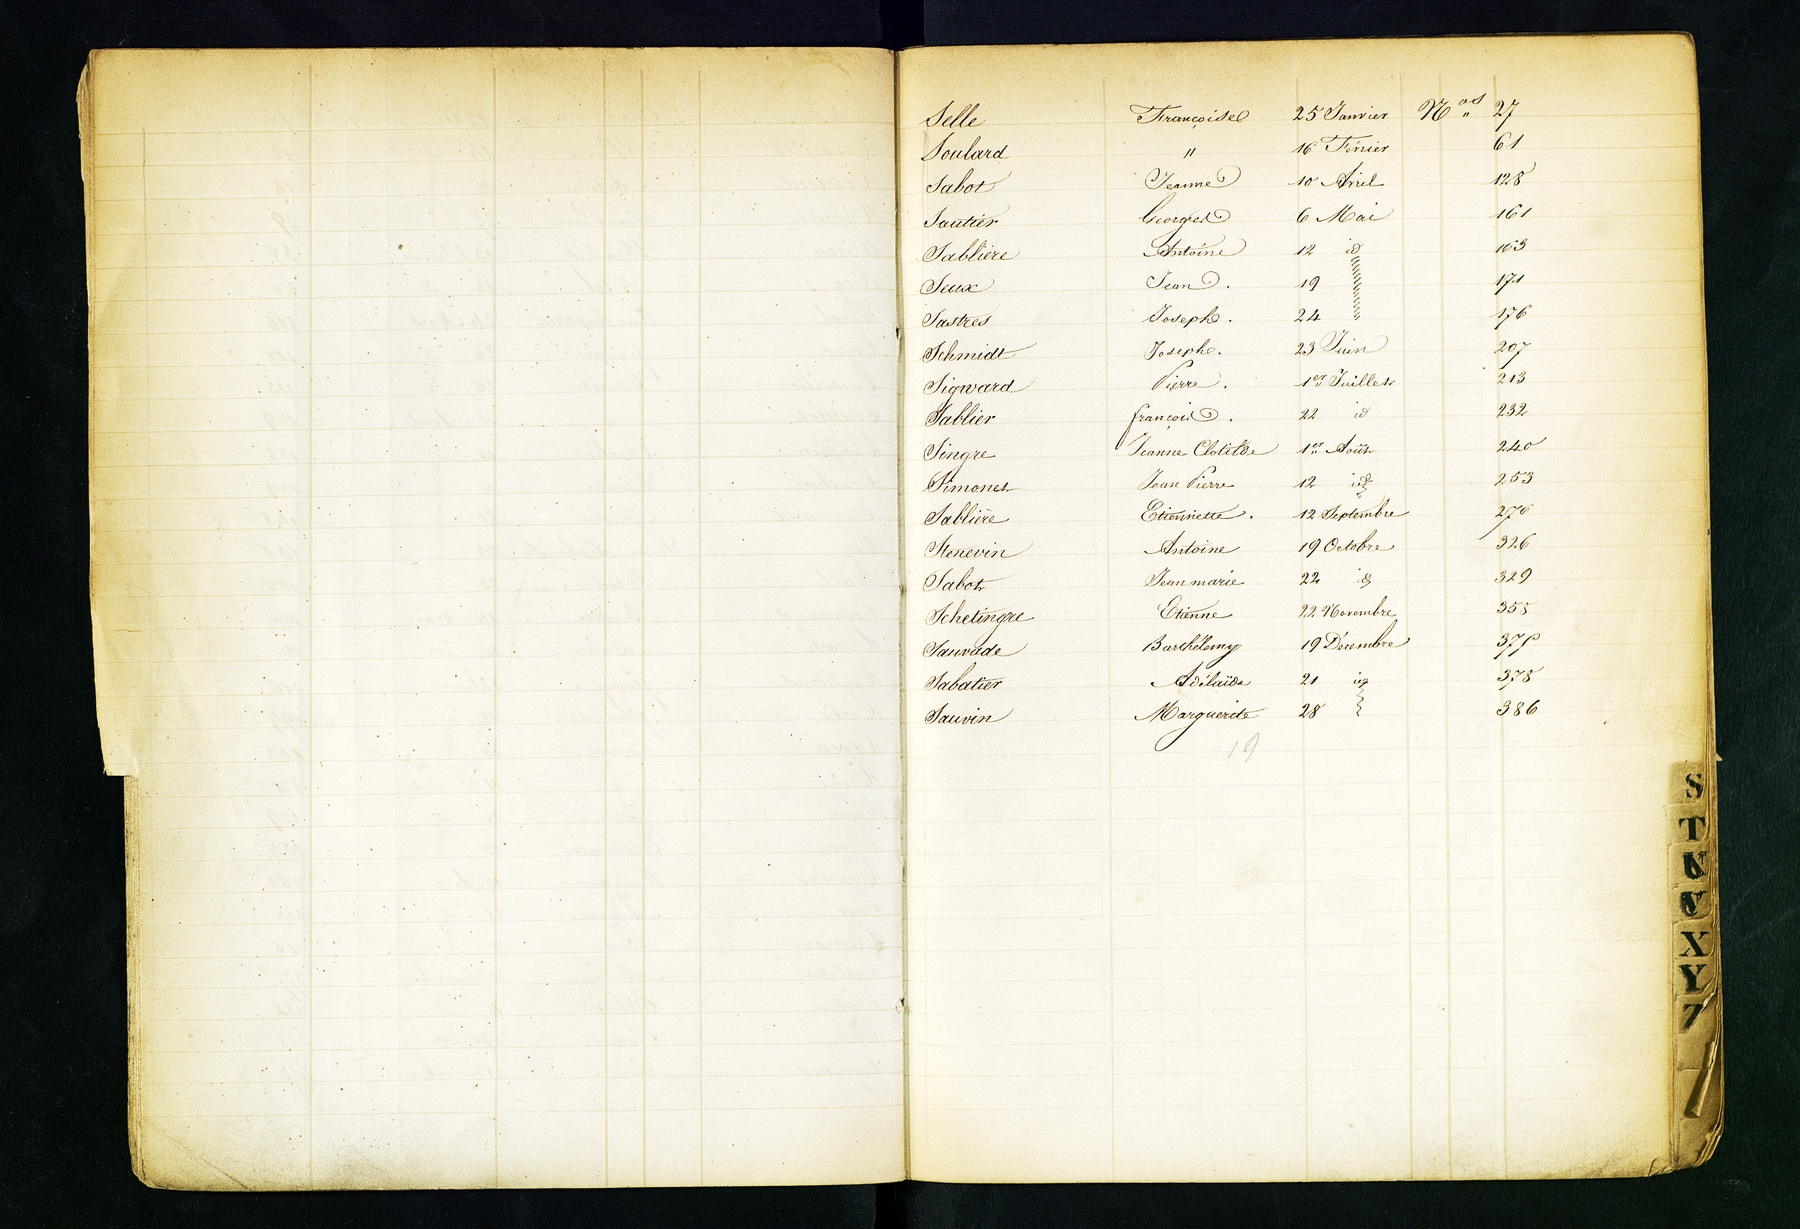 Selle Françoise 25 Janvier Nos 27
Soulard " 16 Février 61
Sabot Jeanne 10 Avril 128
Sautier Georges 6 Mai 161
Sablière Antoine 12 id 163
Seux Jean 19 " 171
Sastres Joseph 24 " 176
Schmidt Joseph 23 Juin 207
Sigward Pierre 1er Juillet 213
Sablier françois 22 id 232
Singre Jeanne Clotilde 1er Août 240
Simonet Jean Pierre 12 id 253
Sablière Etiennette 12 Septembre 276
Stenevin Antoine 19 Octobre 326
Sabot Jean marie 22 id 329
Schetingre Etienne 22 Novembre 355
Sauvade Barthélemy 19 Décembre 377
Sabatier Adélaïde 21 id 378
Sauvin Marguerite 28 386
19
S
T
U
V
X
Y
Z